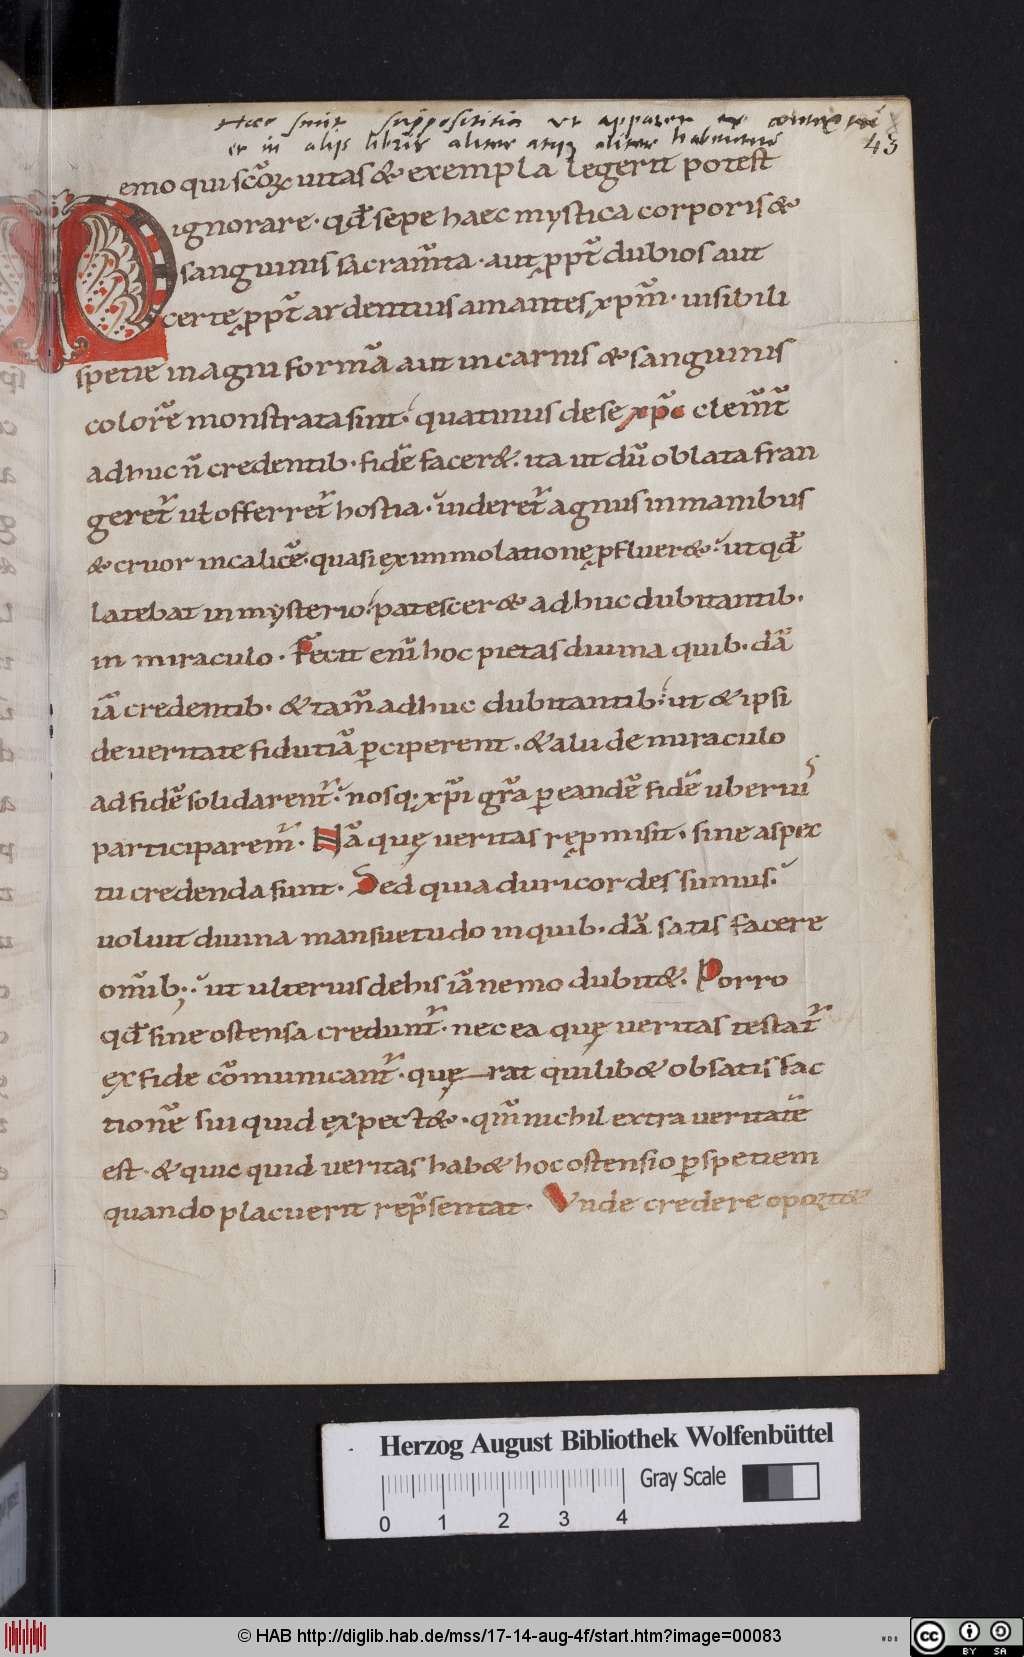 Haec sunt supposititia ut apparet ex contextu
et in alijs libris aliter atq; aliter habuntur
43
Nemo qui scōꝝ uitas & exempla legerit potest
ignorare· qđ sepe haec mystica corporis &
sanguinis sacram̄ta· aut ꝓpt̄ dubios aut
certe ꝓpt̄ ardentius amantes xp̄m· uisibili
spetie in agni formā aut in carnis & sanguinis
colorē monstrata sint· quatinus de se xp̄c clem̄t̄
adhuc n̄ credentib· fidē facer&· ita ut dū oblata fran
geret̄ ut offerret̄ hostia· uideret̄ agnus in manibus
& cruor in calicē· quasi ex immolatione ꝓfluer&· ut qđ
latebat in mysterio· patescer& adhuc dubitantib·
in miraculo· Fecit enī hoc pietas diuina quib· dā
iā credentib· & tam̄ adhuc dubitantib· ut & ipsi
de ueritate fidutiā ꝑciperent· & alii de miraculo
ad fidē solidarent̄· nosq; xp̄i gr̄a ꝑ eandē fidē uberius
participarem̄· Nā quę ueritas reꝓmisit· sine aspec
tu credenda sunt· Sed quia duricordes sumus·
uoluit diuina mansuetudo in quib· dā satis facere
om̄ib;· ut ulterius de his iā nemo dubit&· Porro
qđ sine ostensa credunt̄· nec ea quę ueritas testat̄
ex fide cōmunicant̄· quę rat quilib& ob satis fac
tionē sui quid expect&· qm̄ nichil extra ueritatē
est· & quic quid ueritas hab& hoc ostensio ꝑspetiem
quando placuerit rep̄sentat· Vnde credere oport&
Herzog August Bibliothek Wolfenbüttel
Gray Scale
0 1 2 3 4
© HAB http://diglib.hab.de/mss/17-14-aug-4f/start.htm?image=00083
WDB
cc BY SA